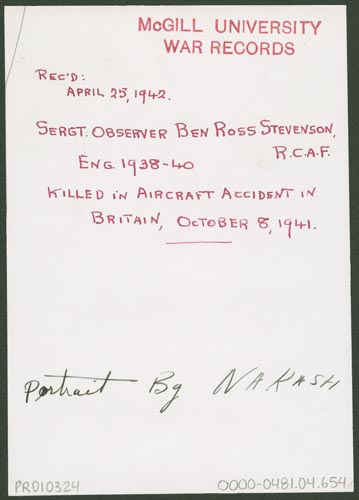 McGILL UNIVERSITY
WAR RECORDS
REC'D:
APRIL 25, 1942.
SERGT. OBSERVER BEN ROSS STEVENSON,
R.C.A.F.
ENG. 1938-40
KILLED IN AIRCRAFT ACCIDENT IN
BRITAIN, OCTOBER 8, 1941.
Portrait By NAKASH
PR010324
0000-0481.04.654